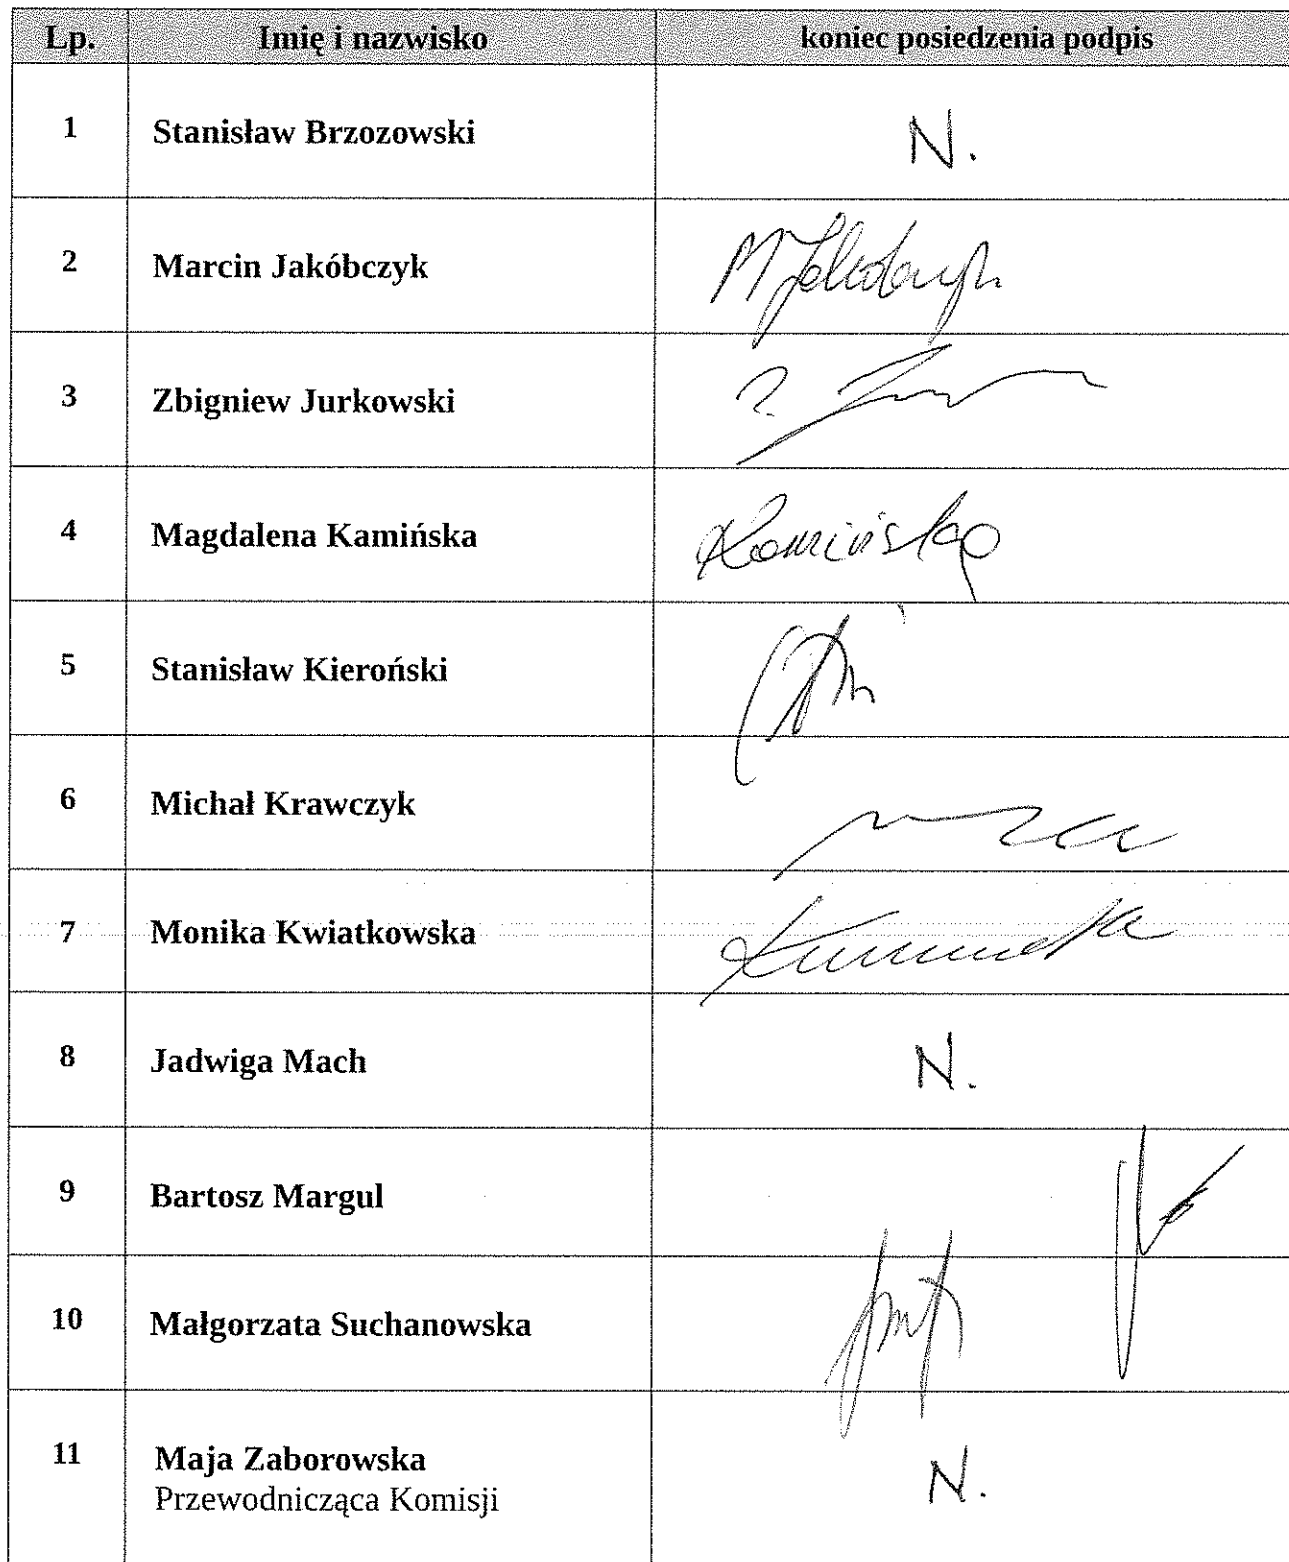 Lp. Imię i nazwisko koniec posiedzenia podpis
1 Stanisław Brzozowski N.
2 Marcin Jakóbczyk M Jakóbczyk
3 Zbigniew Jurkowski
4 Magdalena Kamińska Kamińska
5 Stanisław Kieroński
6 Michał Krawczyk
7 Monika Kwiatkowska
8 Jadwiga Mach N.
9 Bartosz Margul
10 Małgorzata Suchanowska
11 Maja Zaborowska N.
Przewodnicząca Komisji